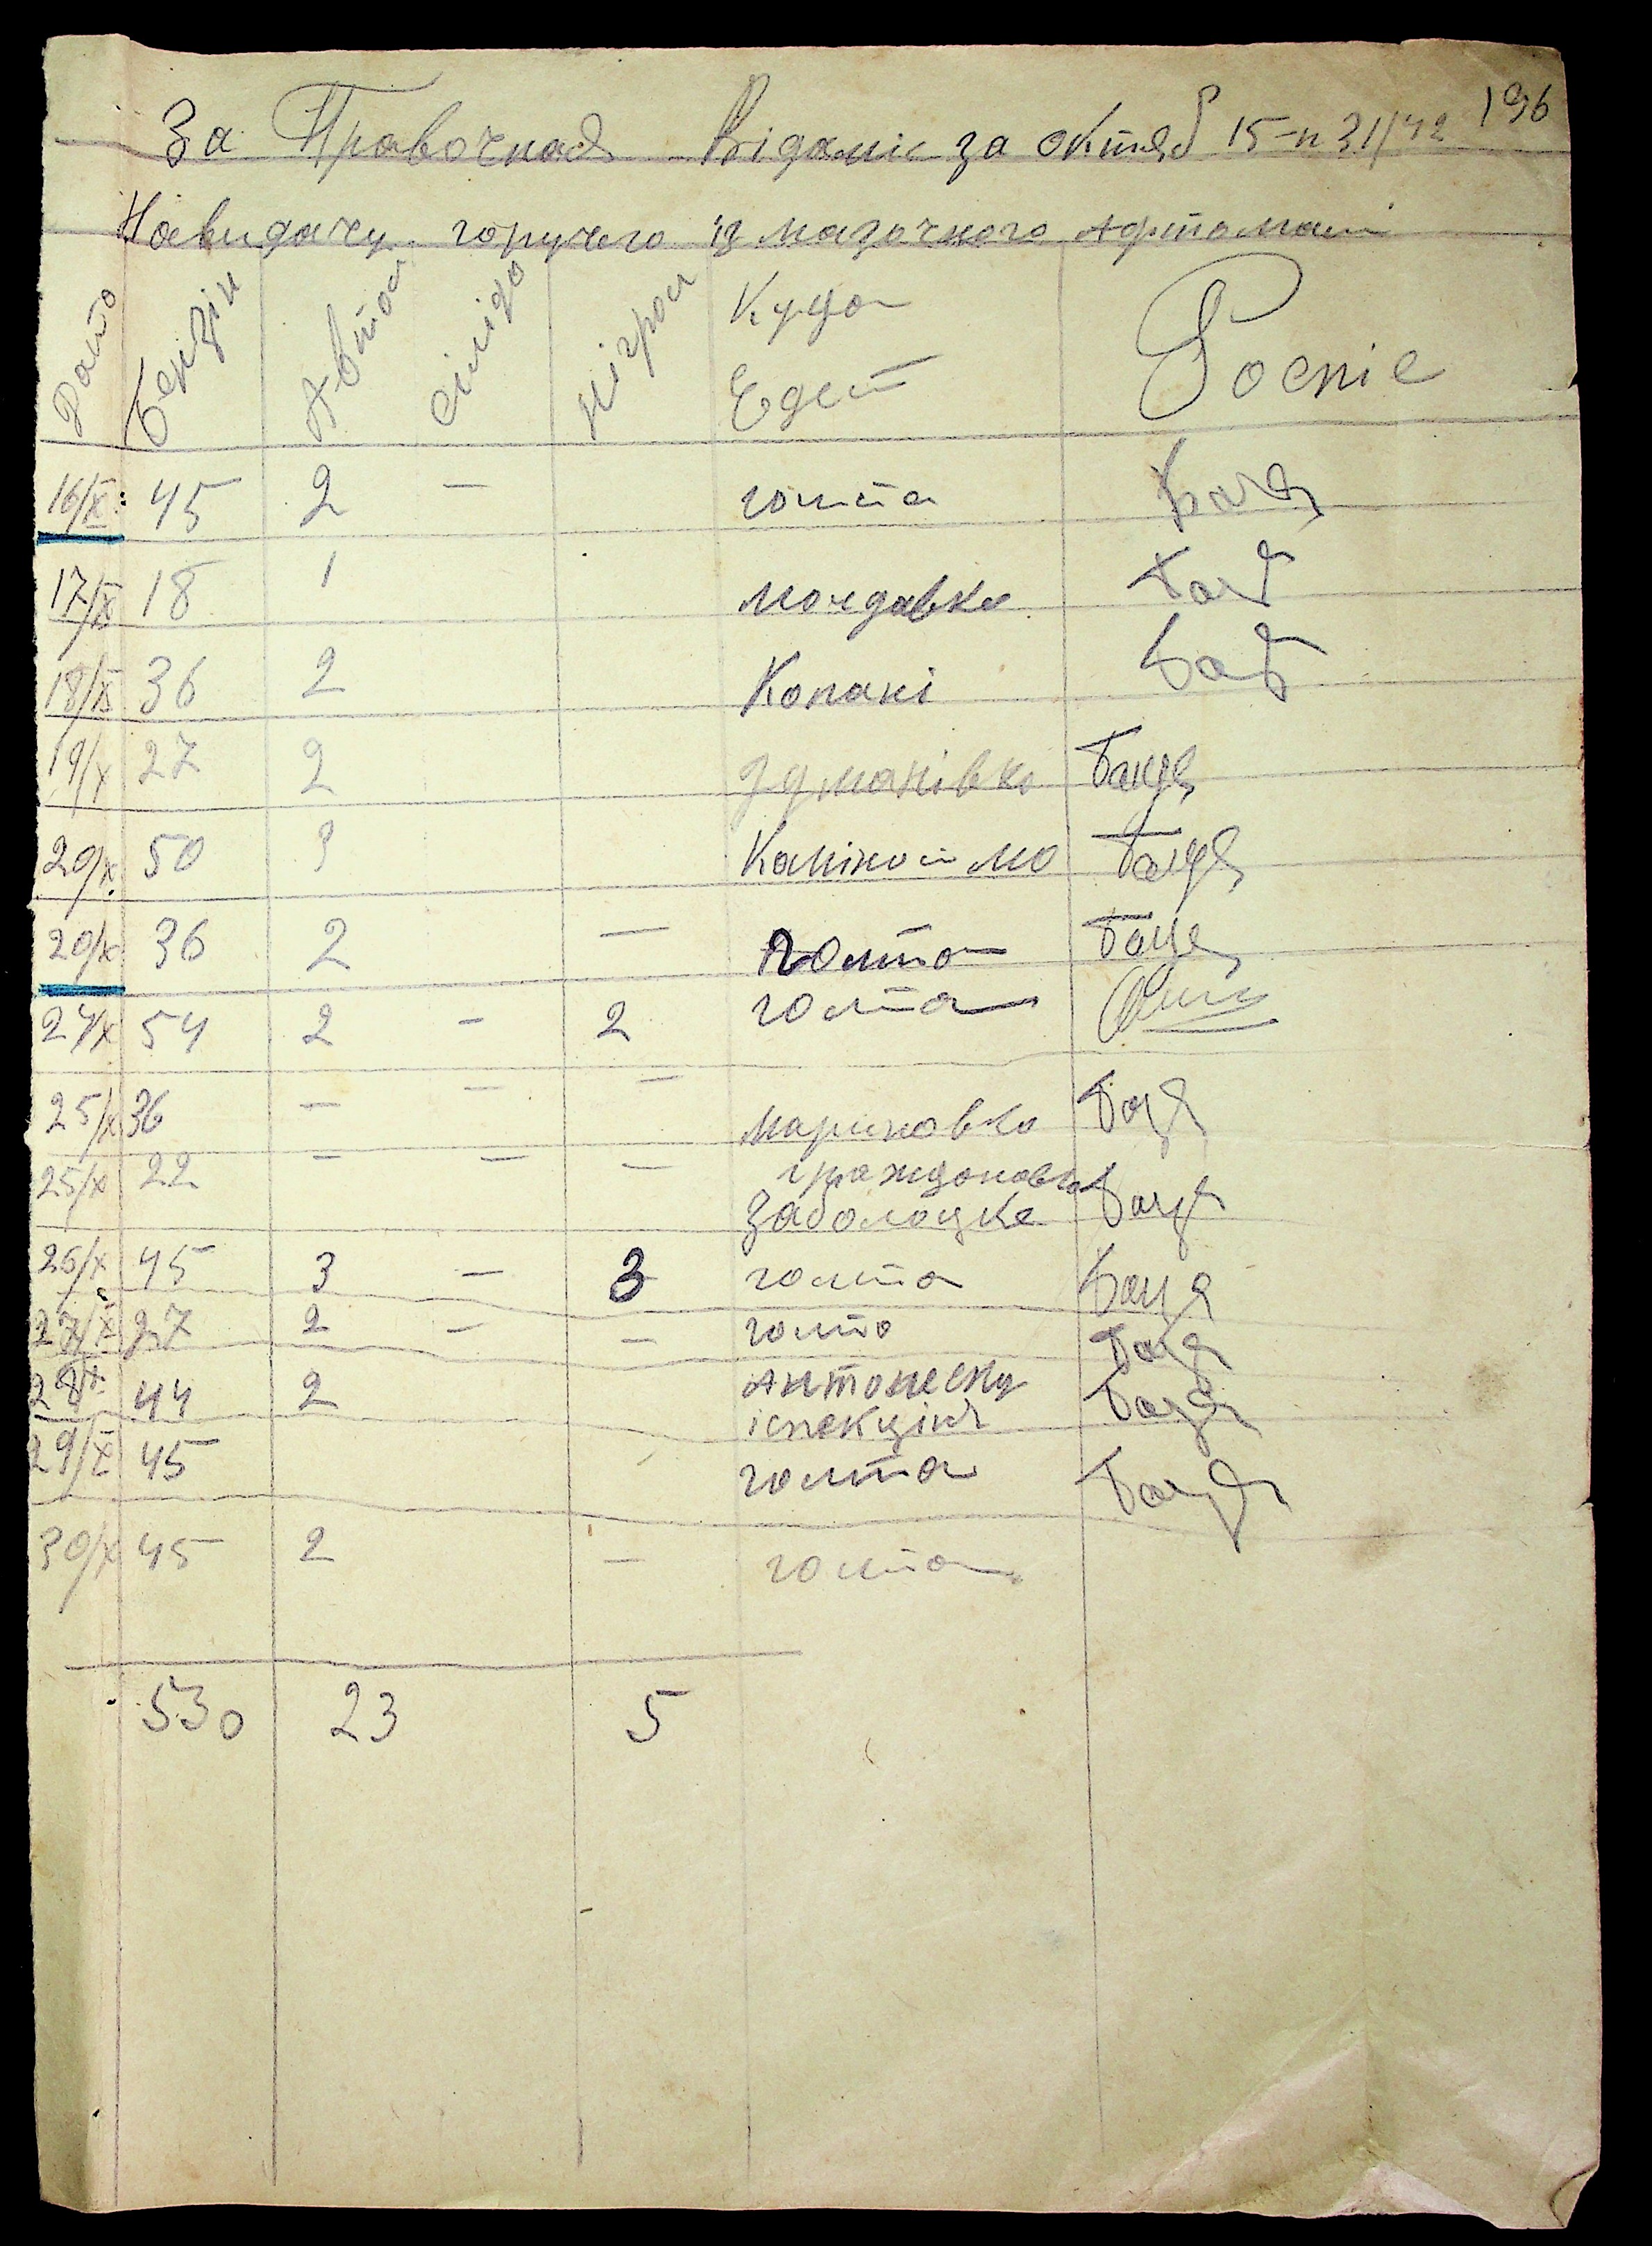 196
За Правочная Відаміс за октяб 15-п 31/42
На видачу горучего із мазочного Афтомаш
Дата Бензін Автол Солідо Нігрол Куда Едет Роспіс
16/X 45 2 — голта Баця
17/X 18 1 молдавка Бац
18/X 36 2 Копані Бац
19/X 27 2 Баця
20/X 50 3 Баця
20/X 36 2 — голта Баця
24/X 54 2 — 2 голта
25/X 36 — — — мариновка Баця
25/X 22 — — — граждановка
Заболоцке Баця
26/X 45 3 — 3 голта Баця
27/X 27 2 — — голта Баця
28/X 44 2 Антонеску
іспекцію Баця
29/X 45 голта Баця
30/X 45 2 — голта
530 23 5